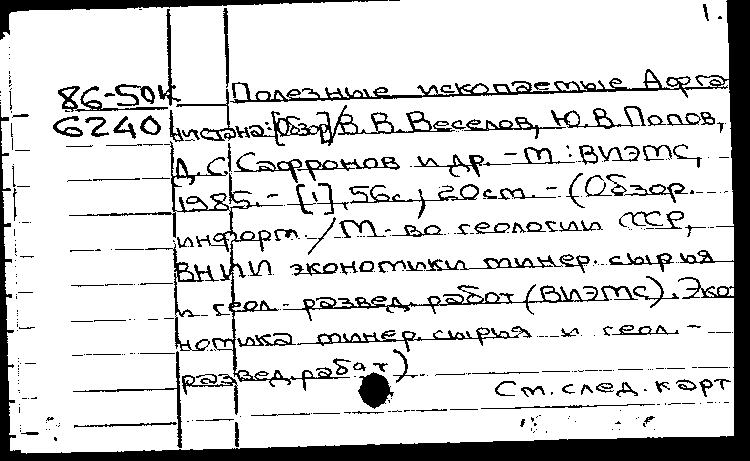 1.
86-50к Полезные ископаемые Афга
6240 нистана: [Обзор] / В. В. Веселов, Ю. В. Попов,
Д. С. Сафронов и др. - М : ВИЭМС,
1985. - [1], 56с.; 20см. - (Обзор.
информ. / М-во геологии СССР,
ВНИИ экономики минер. сырья
и геол.-развед. работ (ВИЭМС). Эко
номика минер. сырья и геол.-
развед. работ)
См. след. карт